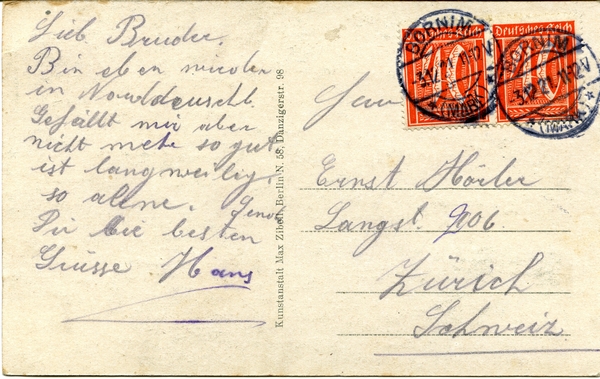 Lieb Bruder.
Bin eben wieder
in Norddeutschl.
Gefällt mir aber
nicht mehr so gut
ist langweilig
so allne.
Dir die besten
Grüsse Hans
Kunstanstalt Max Zibell, Berlin N. 58, Danzigerstr. 98
Deutsches Reich
Deutsches Reich
BORNIM
3.12.21 11-12V
* (MARK) *
BORNIM
3.12.21 11-12V
* (MARK) *
Herrn
Ernst Hörler
Langst. 206
Zürich
Schweiz